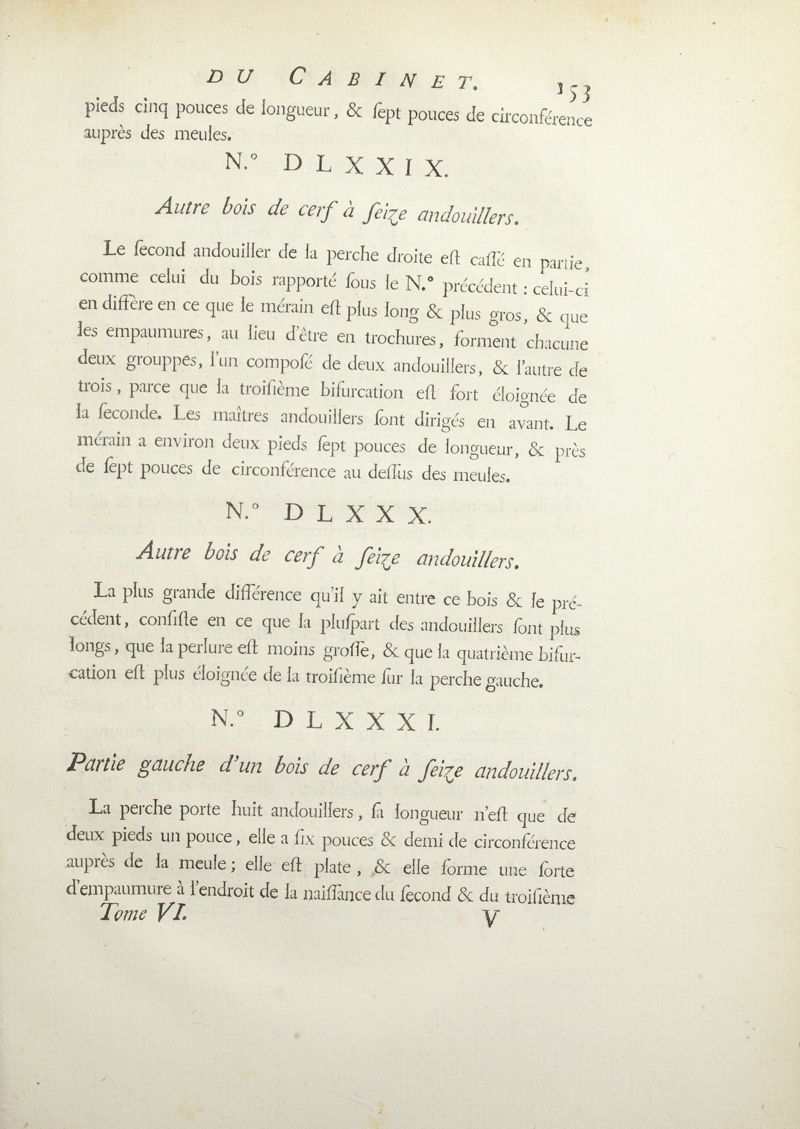 DU CABINET. 153
pieds cinq pouces de longueur, & ſept pouces de circonférence
auprès des meules.
N.° DLXXIX.
Autre bois de cerf à ſeize andouillers.
Le ſecond andouiller de la perche droite eſt caſſé en partie,
comme celui du bois rapporté ſous le N.° précédent : celui-ci
en diffère en ce que le mérain eſt plus long & plus gros, & que
les empaumures, au lieu d'être en trochures, forment chacune
deux grouppes, l'un compoſé de deux andouillers, & l'autre de
trois, parce que la troiſième bifurcation eſt fort éloignée de
la ſeconde. Les maîtres andouillers ſont dirigés en avant. Le
mérain a environ deux pieds ſept pouces de longueur, & près
de ſept pouces de circonférence au deſſus des meules.
N.° DLXXX.
Autre bois de cerf à ſeize andouillers.
La plus grande différence qu'il y ait entre ce bois & le pré-
cédent, conſiſte en ce que la pluſpart des andouillers ſont plus
longs, que la perlure eſt moins groſſe, & que la quatrième bifur-
cation eſt plus éloignée de la troiſième ſur la perche gauche.
N.° DLXXXI.
Partie gauche d'un bois de cerf à ſeize andouillers.
La perche porte huit andouillers, ſa longueur n'eſt que de
deux pieds un pouce, elle a ſix pouces & demi de circonférence
auprès de la meule; elle eſt plate, & elle forme une ſorte
d'empaumure à l'endroit de la naiſſance du ſecond & du troiſième
Tome VI. V